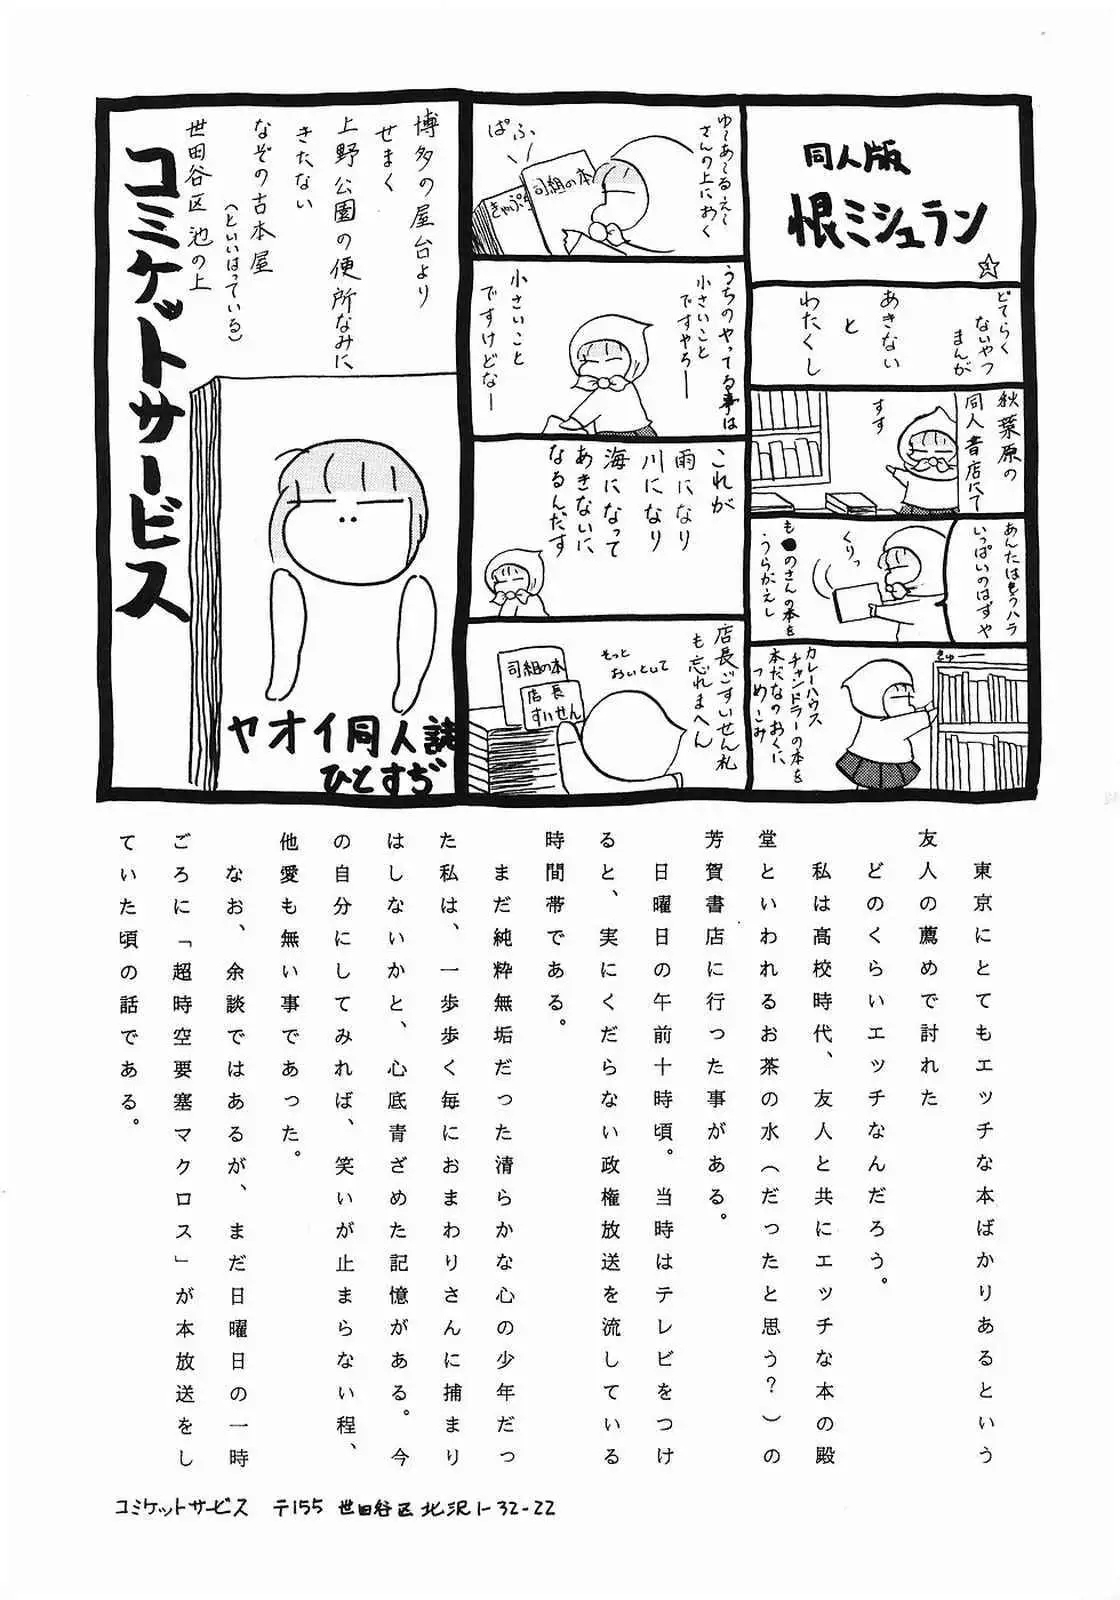 同人版
恨ミシュラン
どてらく
ないやつ
まんが
あきない
と
わたくし
秋葉原の
同人書店にて
すす
あんたはもうハラ
いっぱいのはずや
くりっ
も●のさんの本を
うらがえし
きゅー
カレーハウス
チャンドラーの本を
本だなのおくに
つめこみ
ゆ〜あ〜るえ〜
さんの上におく
ぱふ
司組の本
きゃぷ
うちのやってる事は
小さいこと
ですやろー
小さいこと
ですけどなー
これが
雨になり
川になり
海になって
あきないに
なるんだす
店長ごすいせん札
も忘れまへん
そっと
おいといて
司組の本
店長
すいせん
博多の屋台より
せまく
上野公園の便所なみに
きたない
なぞの古本屋
(といいはっている)
世田谷区池の上
コミケットサービス
ヤオイ同人誌
ひとすぢ
東京にとてもエッチな本ばかりあるという
友人の薦めで討れた
どのくらいエッチなんだろう。
私は高校時代、友人と共にエッチな本の殿
堂といわれるお茶の水(だったと思う?)の
芳賀書店に行った事がある。
日曜日の午前十時頃。当時はテレビをつけ
ると、実にくだらない政権放送を流している
時間帯である。
まだ純粋無垢だった清らかな心の少年だっ
た私は、一歩歩く毎におまわりさんに捕まり
はしないかと、心底青ざめた記憶がある。今
の自分にしてみれば、笑いが止まらない程、
他愛も無い事であった。
なお、余談ではあるが、まだ日曜日の一時
ごろに「超時空要塞マクロス」が本放送をし
ていた頃の話である。
コミケットサービス 〒155 世田谷区北沢1-32-22